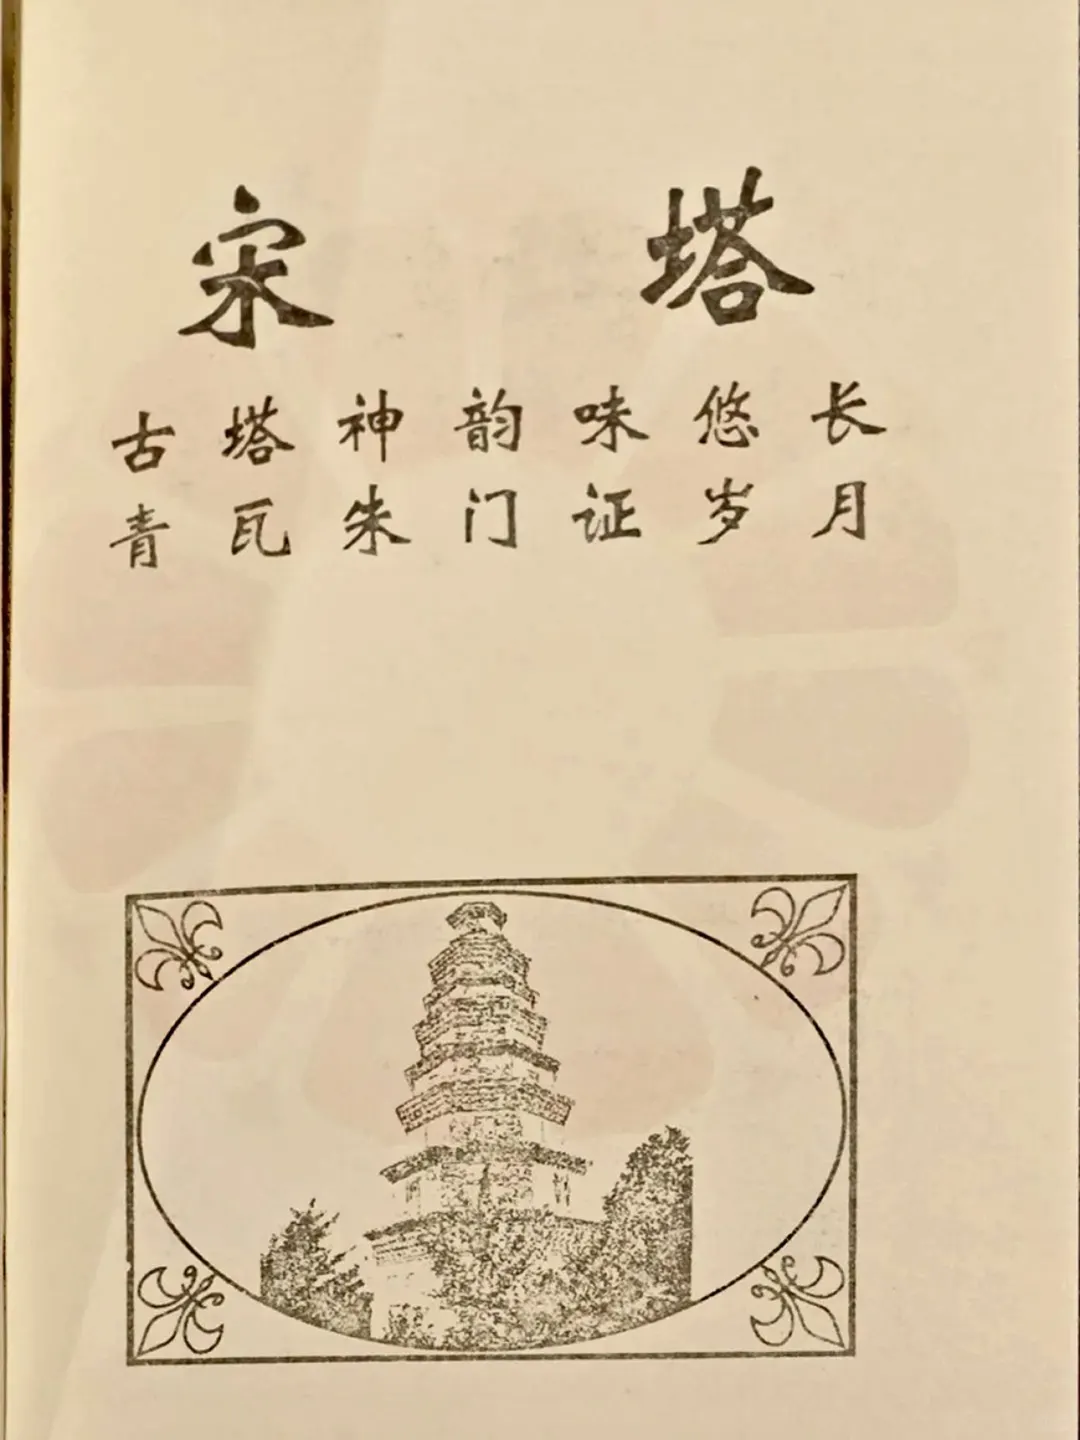 宋塔
古塔神韵味悠长
青瓦朱门证岁月